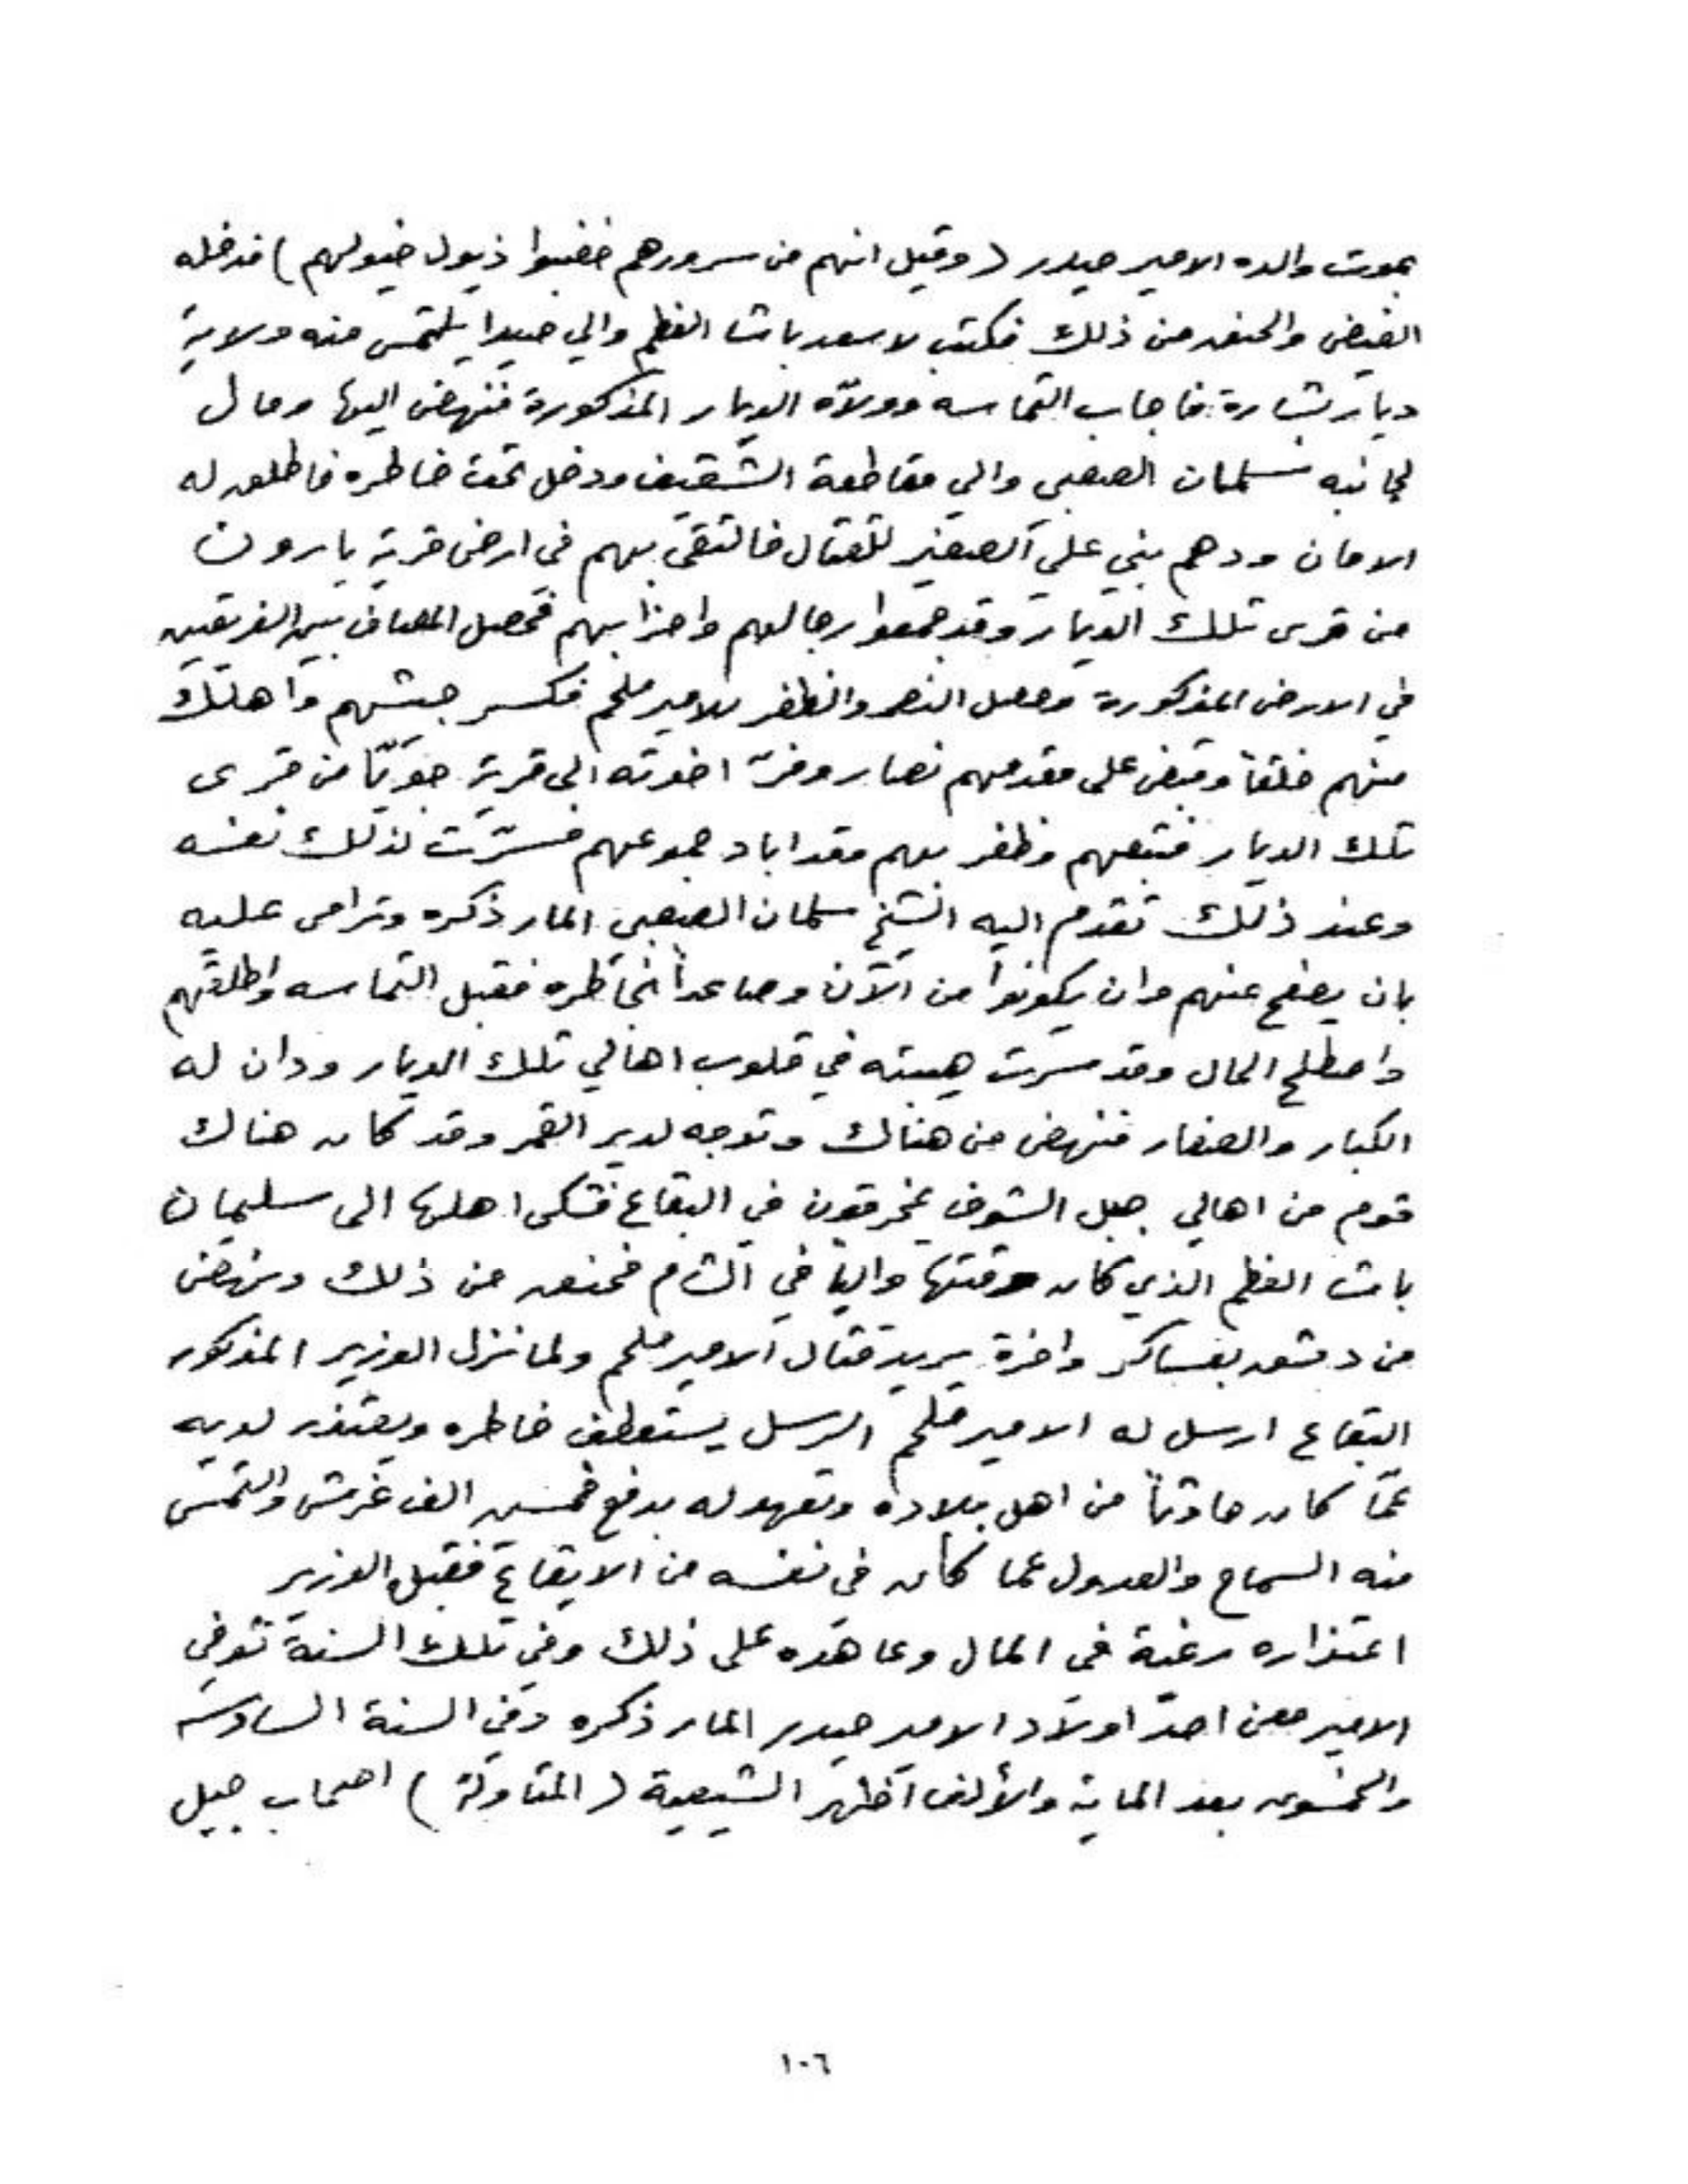 بموت والده الامير حيدر ( وقيل انهم من سرورهم خضبوا ذيول خيولهم ) فدخله
الغيض والحنق من ذلك فكتب لاسعد باشا العظم والي صيدا يلتمس منه ولاية
ديار بشارة فاجاب التماسه وولاّه الديار المذكورة فنهض اليها ومال
لجانبه سلمان الصعبي والي مقاطعة الشقيف ودخل تحت خاطره فاطلق له
الامان ودهم بني علي الصغير للقتال فالتقى بهم في ارض قرية يارون
من قرى تلك الديار وقد جمعوا رجالهم واحزابهم فحصل المصاف بين الفريقين
في الارض المذكورة وحصل النصر والظفر للامير ملحم فكسر جيشهم واهلك
منهم خلقاً وقبض على مقدمهم نصار وفرّ اخوته الى قرية جويّا من قرى
تلك الديار فتبعهم وظفر بهم وقد اباد جموعهم فسرّت لذلك نفسه
وعند ذلك تقدم اليه الشيخ سلمان الصعبي المار ذكره وترامى عليه
بان يصفح عنهم وان يكونوا من الآن وصاعداً بخاطره فقبل التماسه واطلقهم
واصطلح الحال وقد سرت هيبته في قلوب اهالي تلك الديار ودان له
الكبار والصغار فنهض من هناك وتوجه لدير القمر وقد كان هناك
قوم من اهالي جبل الشوف يخرقون في البقاع فشكى اهلها الى سليمان
باشا العظم الذي كان وقتها والياً في الشام فحنق من ذلك ونهض
من دمشق بعساكر وافرة يريد قتال الامير ملحم ولما نزل الوزير المذكور
البقاع ارسل له الامير ملحم الرسل يستعطف خاطره ويعتذر لديه
عمّا كان حادثاً من اهل بلاده وتعهد له بدفع خمسين الف غرش والتمس
منه السماح والعدول عما كان في نفسه من الايقاع فقبل الوزير
اعتذاره رغبة في المال وعاهده على ذلك وفي تلك السنة توفي
الامير معن احد اولاد الامير حيدر المار ذكره وفي السنة السادسة
والخمسون بعد الماية والألف اظهر الشيعية ( المتاولة ) اصحاب جبل
١٠٦